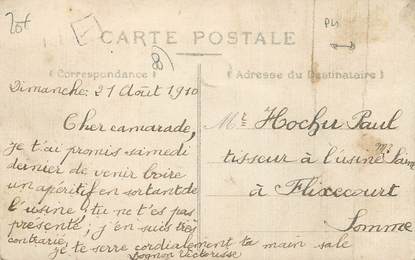 CARTE POSTALE
(Correspondance)
Dimanche: 21 Août 1910
Cher camarade,
je t'ai promis samedi
dernier de venir boire
un apéritif en sortant de
l'usine; tu ne t'es pas
présenté, j'en suis très
contrarié,
je te serre cordialement ta main sale
(Adresse du Destinataire)
Mr Hochu Paul
tisseur à l'usine Mr
à Flixecourt
Somme